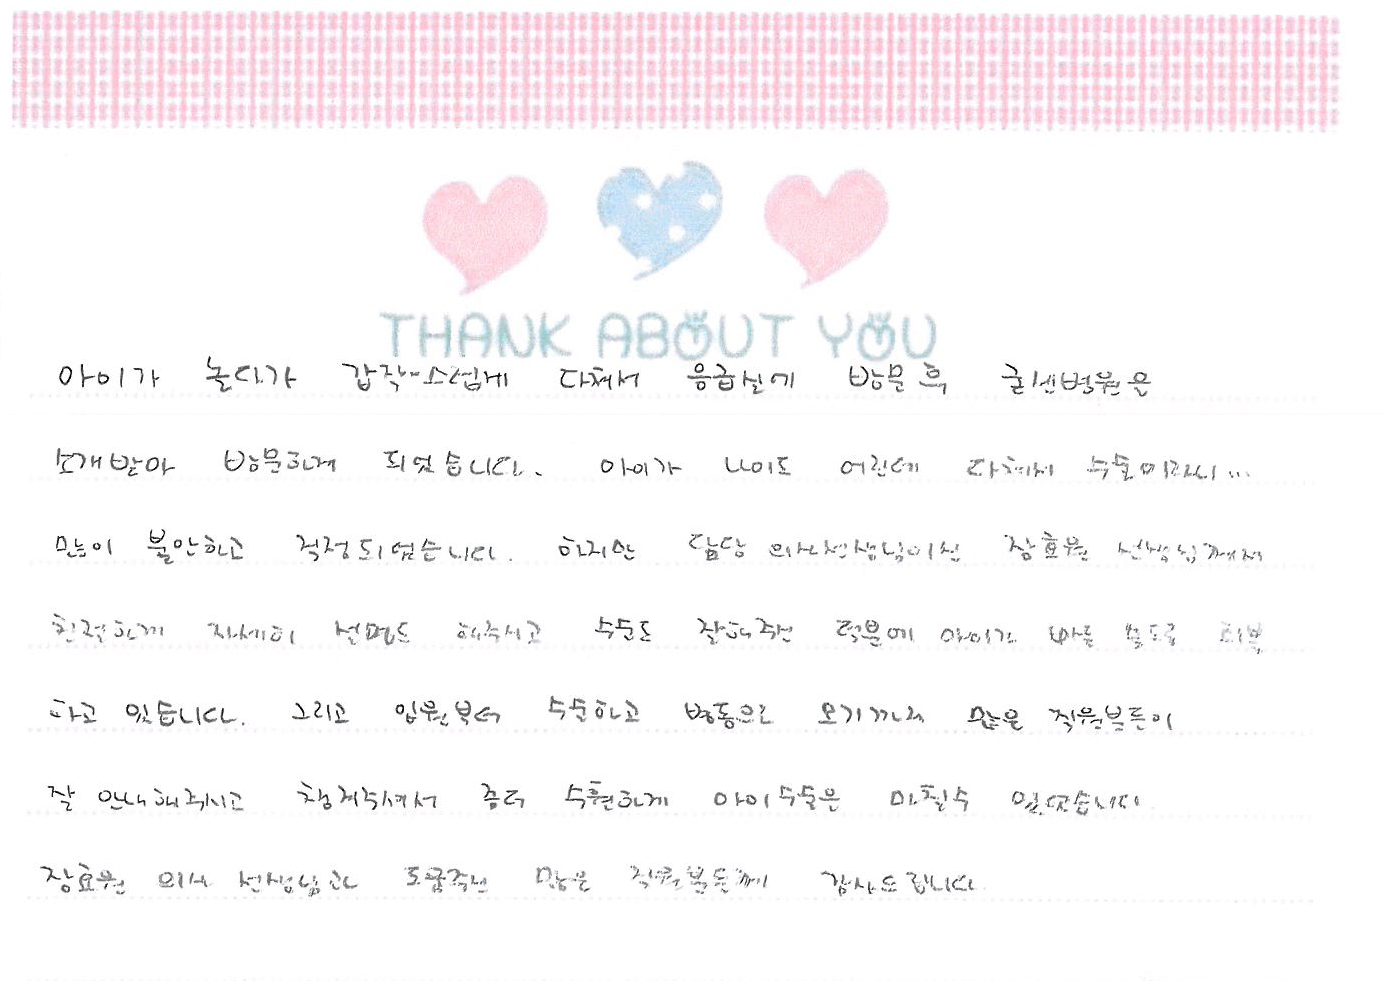 THANK ABOUT YOU
아이가 놀다가 갑작스럽게 다쳐서 응급실에 방문 후 굿센병원은
소개받아 방문하게 되었습니다. 아이가 나이도 어린데 다쳐서 수술이라니...
많이 불안하고 걱정되었습니다. 하지만 담당 의사선생님이신 장효원 선생님께서
친절하게 자세히 설명도 해주시고 수술도 잘해주신 덕분에 아이가 빠른 속도로 회복
하고 있습니다. 그리고 입원부터 수술하고 병동으로 오기까지 많은 직원분들이
잘 안내해주시고 챙겨주셔서 좀더 수월하게 아이수술은 마칠수 있었습니다.
장효원 의사 선생님과 도움주신 많은 직원분들께 감사드립니다.